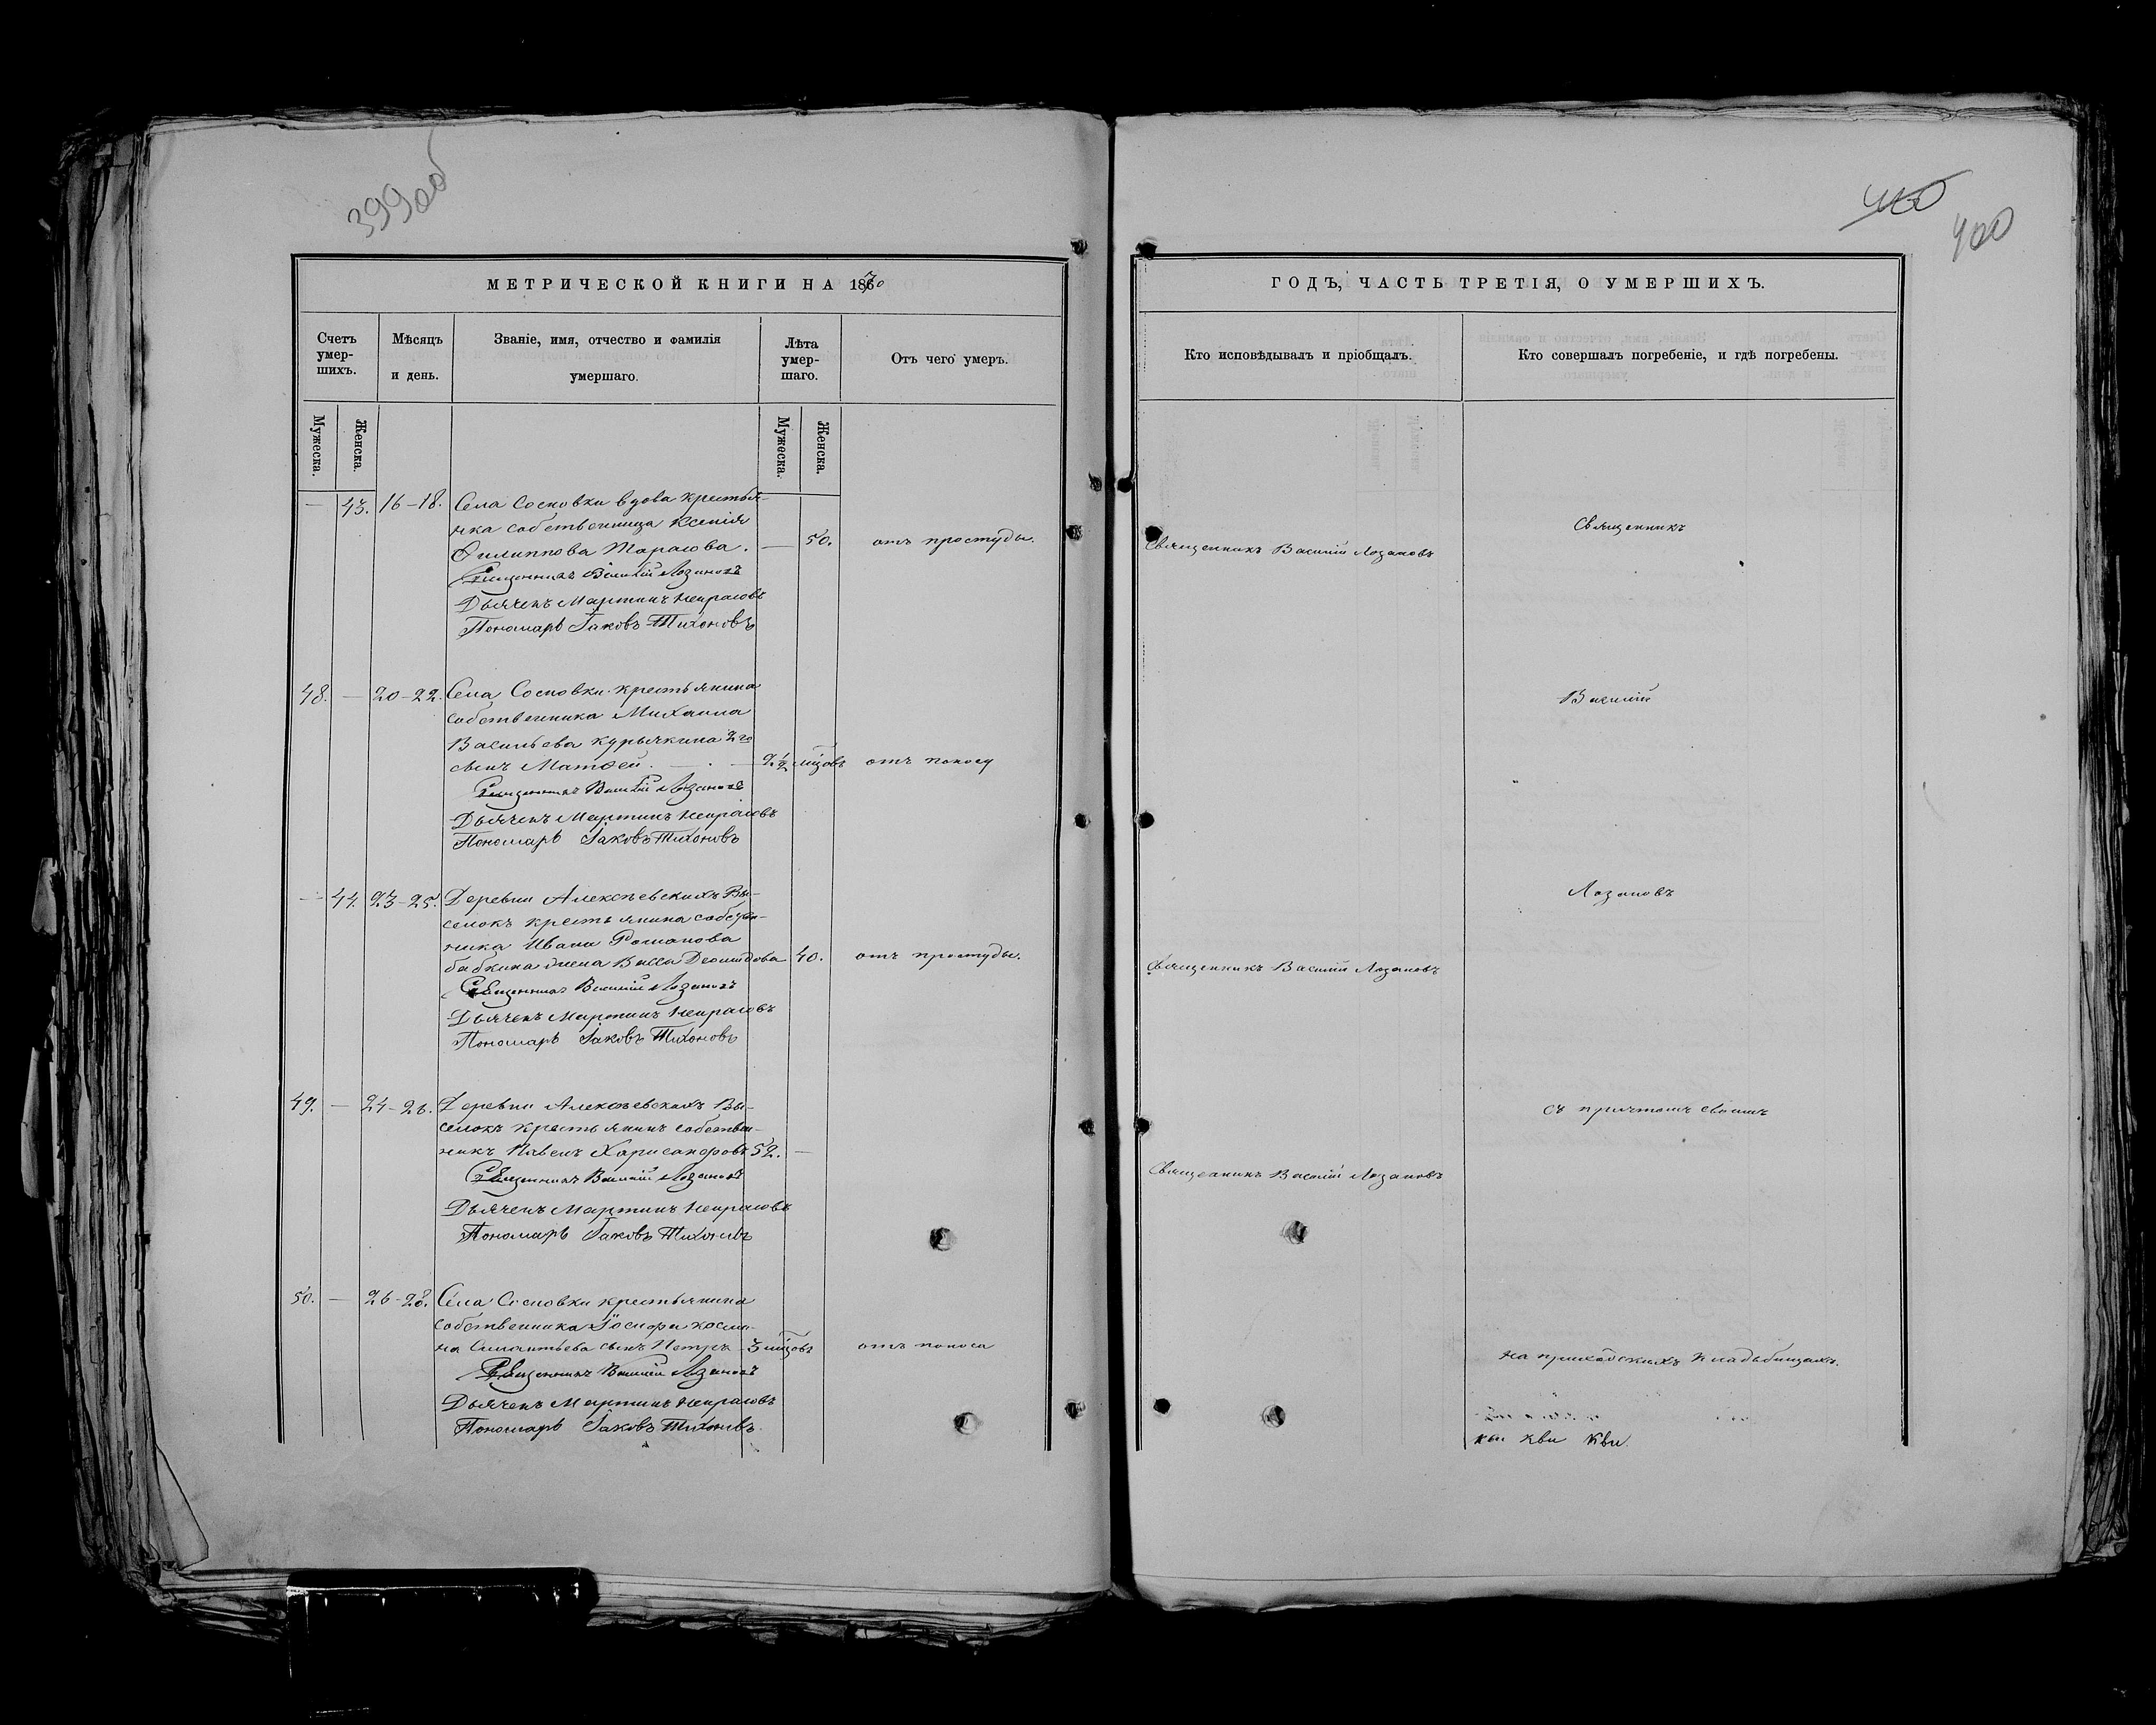 399об
МЕТРИЧЕСКОЙ КНИГИ НА 1870
Счетъ умер-шихъ.
Мѣсяцъ и день.
Званіе, имя, отчество и фамилія умершаго.
Лѣта умер-шаго.
Отъ чего умеръ.
Мужеска.
Женска.
Мужеска.
Женска.
— 43. 16-18. Села Сосновки вдова крестья-
нка собственница Ксенія
Филиппова Тарасова. — 50. отъ простуды.
Священникъ Василій Лозановъ
Дьячекъ Мартинъ Некрасовъ
Пономарь Іаковъ Тихоновъ
48. — 20-22. Села Сосновки крестьянина
собственника Михаила
Васильева Курячкина 2го
сынъ Матѳей. — 2½ мѣсцовъ отъ поносу
Священникъ Василій Лозановъ
Дьячекъ Мартинъ Некрасовъ
Пономарь Іаковъ Тихоновъ
— 44. 23-25. Деревни Алексѣевскихъ Вы-
селокъ крестьянина собствен-
ника Ивана Романова
Бабкина жена Васса Деомидова 40. отъ простуды.
Священникъ Василій Лозановъ
Дьячекъ Мартинъ Некрасовъ
Пономарь Іаковъ Тихоновъ
49. — 24-26. Деревни Алексѣевскихъ Вы-
селокъ крестьянинъ собствен-
никъ Павелъ Харисанфовъ 52. —
Священникъ Василій Лозановъ
Дьячекъ Мартинъ Некрасовъ
Пономарь Іаковъ Тихоновъ
50. — 26-28. Села Сосновки крестьянина
собственника Іосифа Косми-
на сынъ Петръ 3 мѣсцовъ отъ поноса
Священникъ Василій Лозановъ
Дьячекъ Мартинъ Некрасовъ
Пономарь Іаковъ Тихоновъ.
400
ГОДЪ, ЧАСТЬ ТРЕТІЯ, О УМЕРШИХЪ.
Кто исповѣдывалъ и пріобщалъ.
Кто совершалъ погребеніе, и гдѣ погребены.
Священникъ
Священникъ Василій Лозановъ
Василій
Лозановъ
Священникъ Василій Лозановъ
съ причтомъ своимъ
Священникъ Василій Лозановъ
на приходскихъ кладбищахъ.